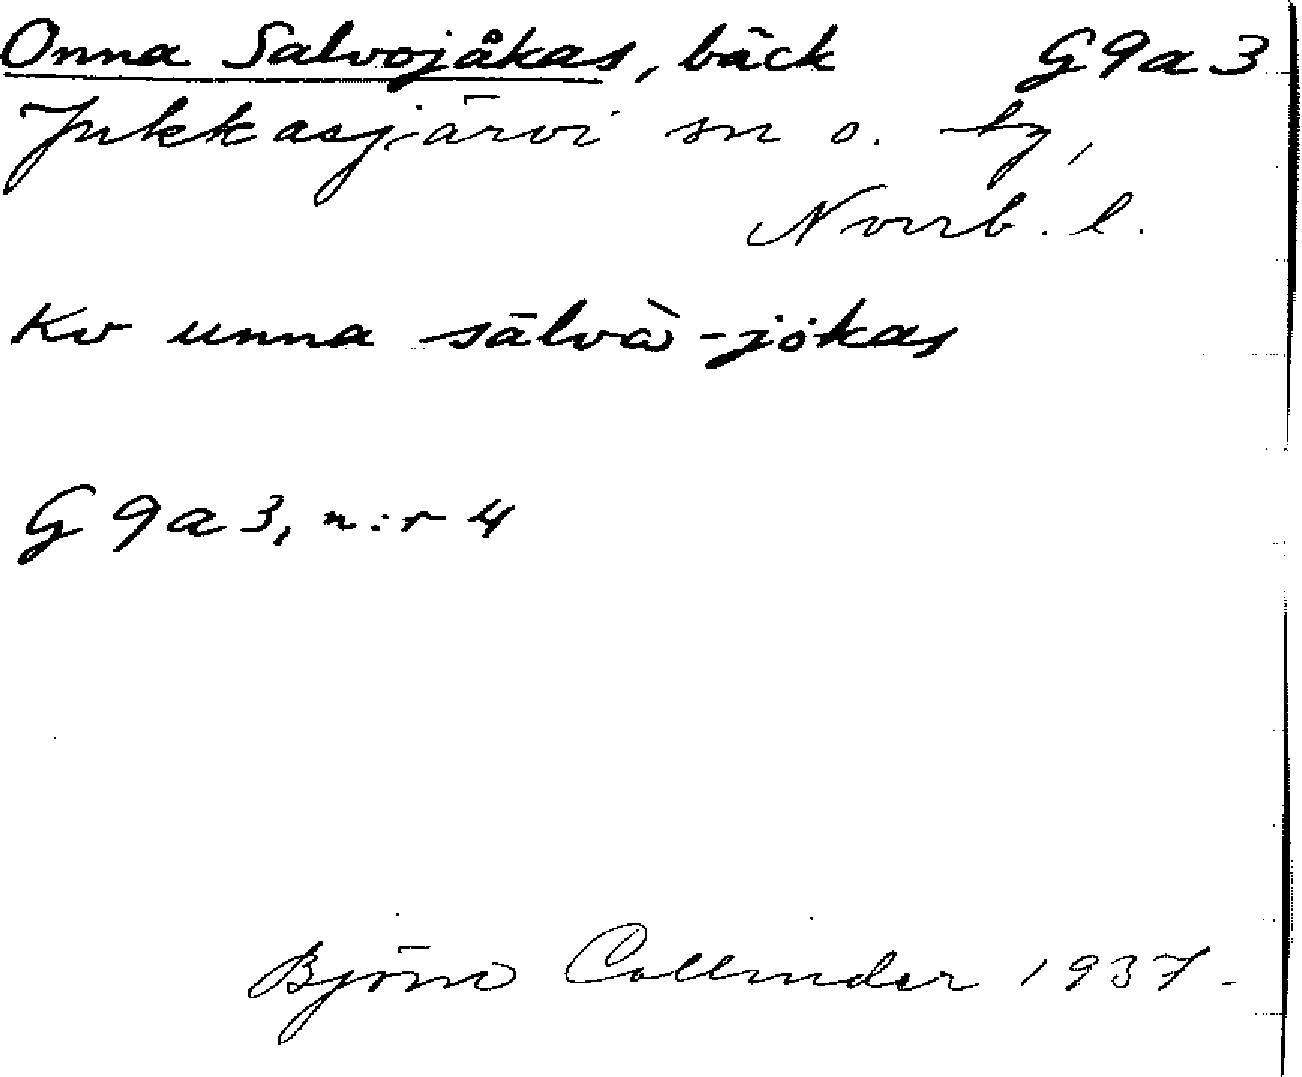 Onna Salvojåkas, bäck G9a3
Jukkasjärvi sn o. tg,
Norrb. l.
Kv unna sälvà-jokas
G9a3, n:r 4
Björn Collinder 1937.